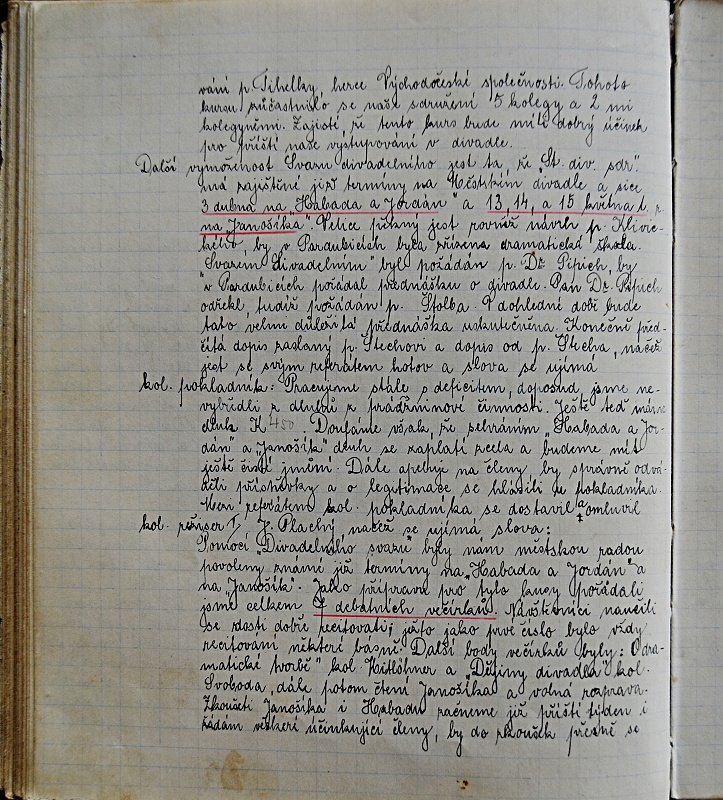 vání p. Tihelky, herce Východočeské společnosti. Tohoto
kursu zúčastnilo se naše sdružení 5 kolegy a 2 mi
kolegyněmi. Zajisté, že tento kurs bude míti dobrý účinek
pro příští naše vystupování v divadle.
Další vymoženost Svazu divadelního jest ta, že „St. div. sdr."
má zajištěné již termíny na Městském divadle a sice
3 dubna na „Habada a Jordán" a 13, 14, a 15 května t. r.
na „Janošíka". Velice pěkný jest rovněž návrh p.
by v Pardubicích byla zřízena dramatická škola.
Svazem divadelním" byl požádán p. Dr. Pipich, by
v Pardubicích pořádal přednášku o divadle. Pan Dr. Pipich
odřekl, tudíž požádán p. Štolba. V dohledné době bude
tato velmi důležitá přednáška uskutečněna. Konečně před-
čítá dopis zaslaný p. Štechovi a dopis od p. Štecha, načež
jest se svým referátem hotov a slova se ujímá
kol. pokladník: Pracujeme stále s deficitem, doposud jsme ne-
vybředli z dluhů z prázdninové činnosti. Ještě teď máme
dluh K 450. Doufáme však, že sehráním „Habada a Jor-
dán" a „Janošík" dluh se zaplatí zcela a budeme mít
ještě čisté jmění. Dále apeluje na členy by správně odvá-
děli příspěvky a o legitimace se hlásili u pokladníka.
Mezi referátem kol. pokladníka se dostavil a omluvil
kol. režiser J. Plachý načež se ujímá slova:
Pomocí „Divadelního svazu" byly nám městskou radou
povoleny známé již termíny na „Habada a Jordán" a
na „Janošík". Jako přípravu pro tyto kusy pořádali
jsme celkem debatních večírků. Návštěvníci naučili
se dosti dobře recitovati, ježto jako prvé číslo bylo vždy
recitování některé básně. Další body večírků byly: O dra-
matické tvorbě" kol. a „Dějiny divadla" kol.
Svoboda, dále potom čtení Janošíka a volná rozprava.
Zkoušeti Janošíka i Habadu začneme již příští týden i
žádám veškeré účinkující členy, by do zkoušek přesně se